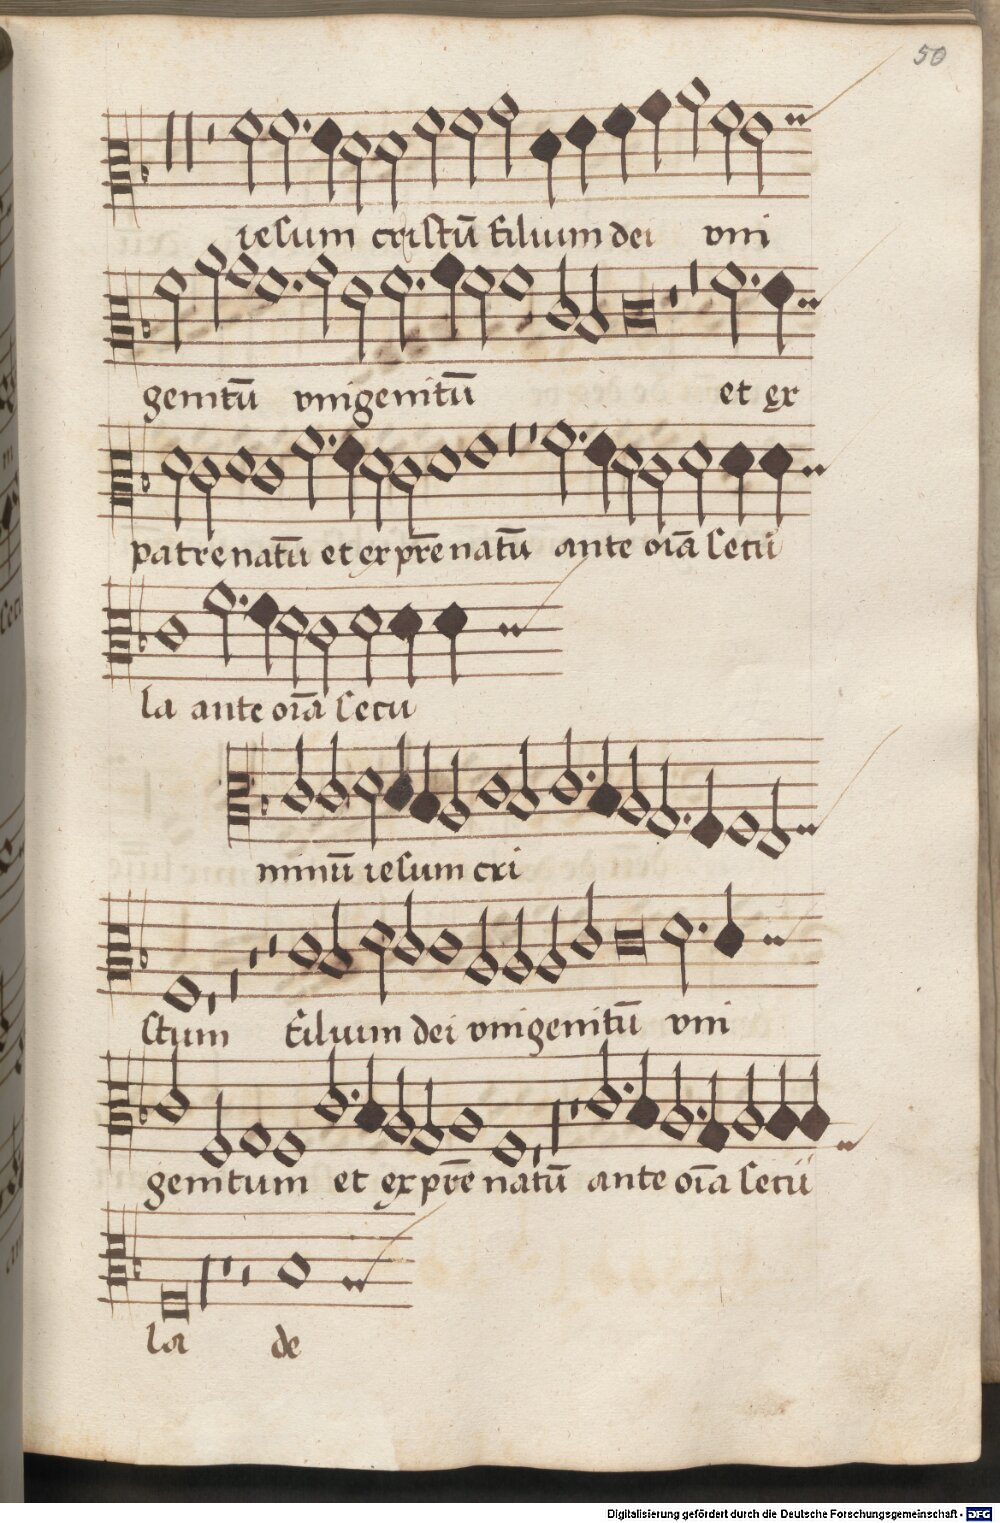 50
iesum cristū filium dei vni
genitū vnigenitū et ex
patre natū et ex pr̄e natū ante oīa secu
la ante oīa secu
minū iesum cri
stum filium dei vnigenitū vni
genitum et ex pr̄e natū ante oīa secu
la de
Digitalisierung gefördert durch die Deutsche Forschungsgemeinschaft - DFG